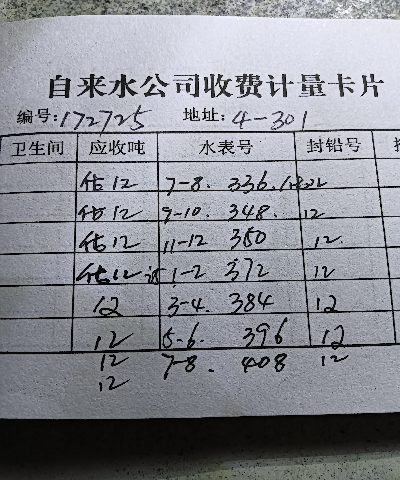 自来水公司收费计量卡片
编号:172725 地址:4-301
卫生间 应收吨 水表号 封铅号
估12 7-8. 336.
估12 9-10. 348. 12
估12 11-12 360 12.
估12 1-2 372 12
12 3-4. 384 12
12 5-6. 396 12
12 7-8. 408 12
12